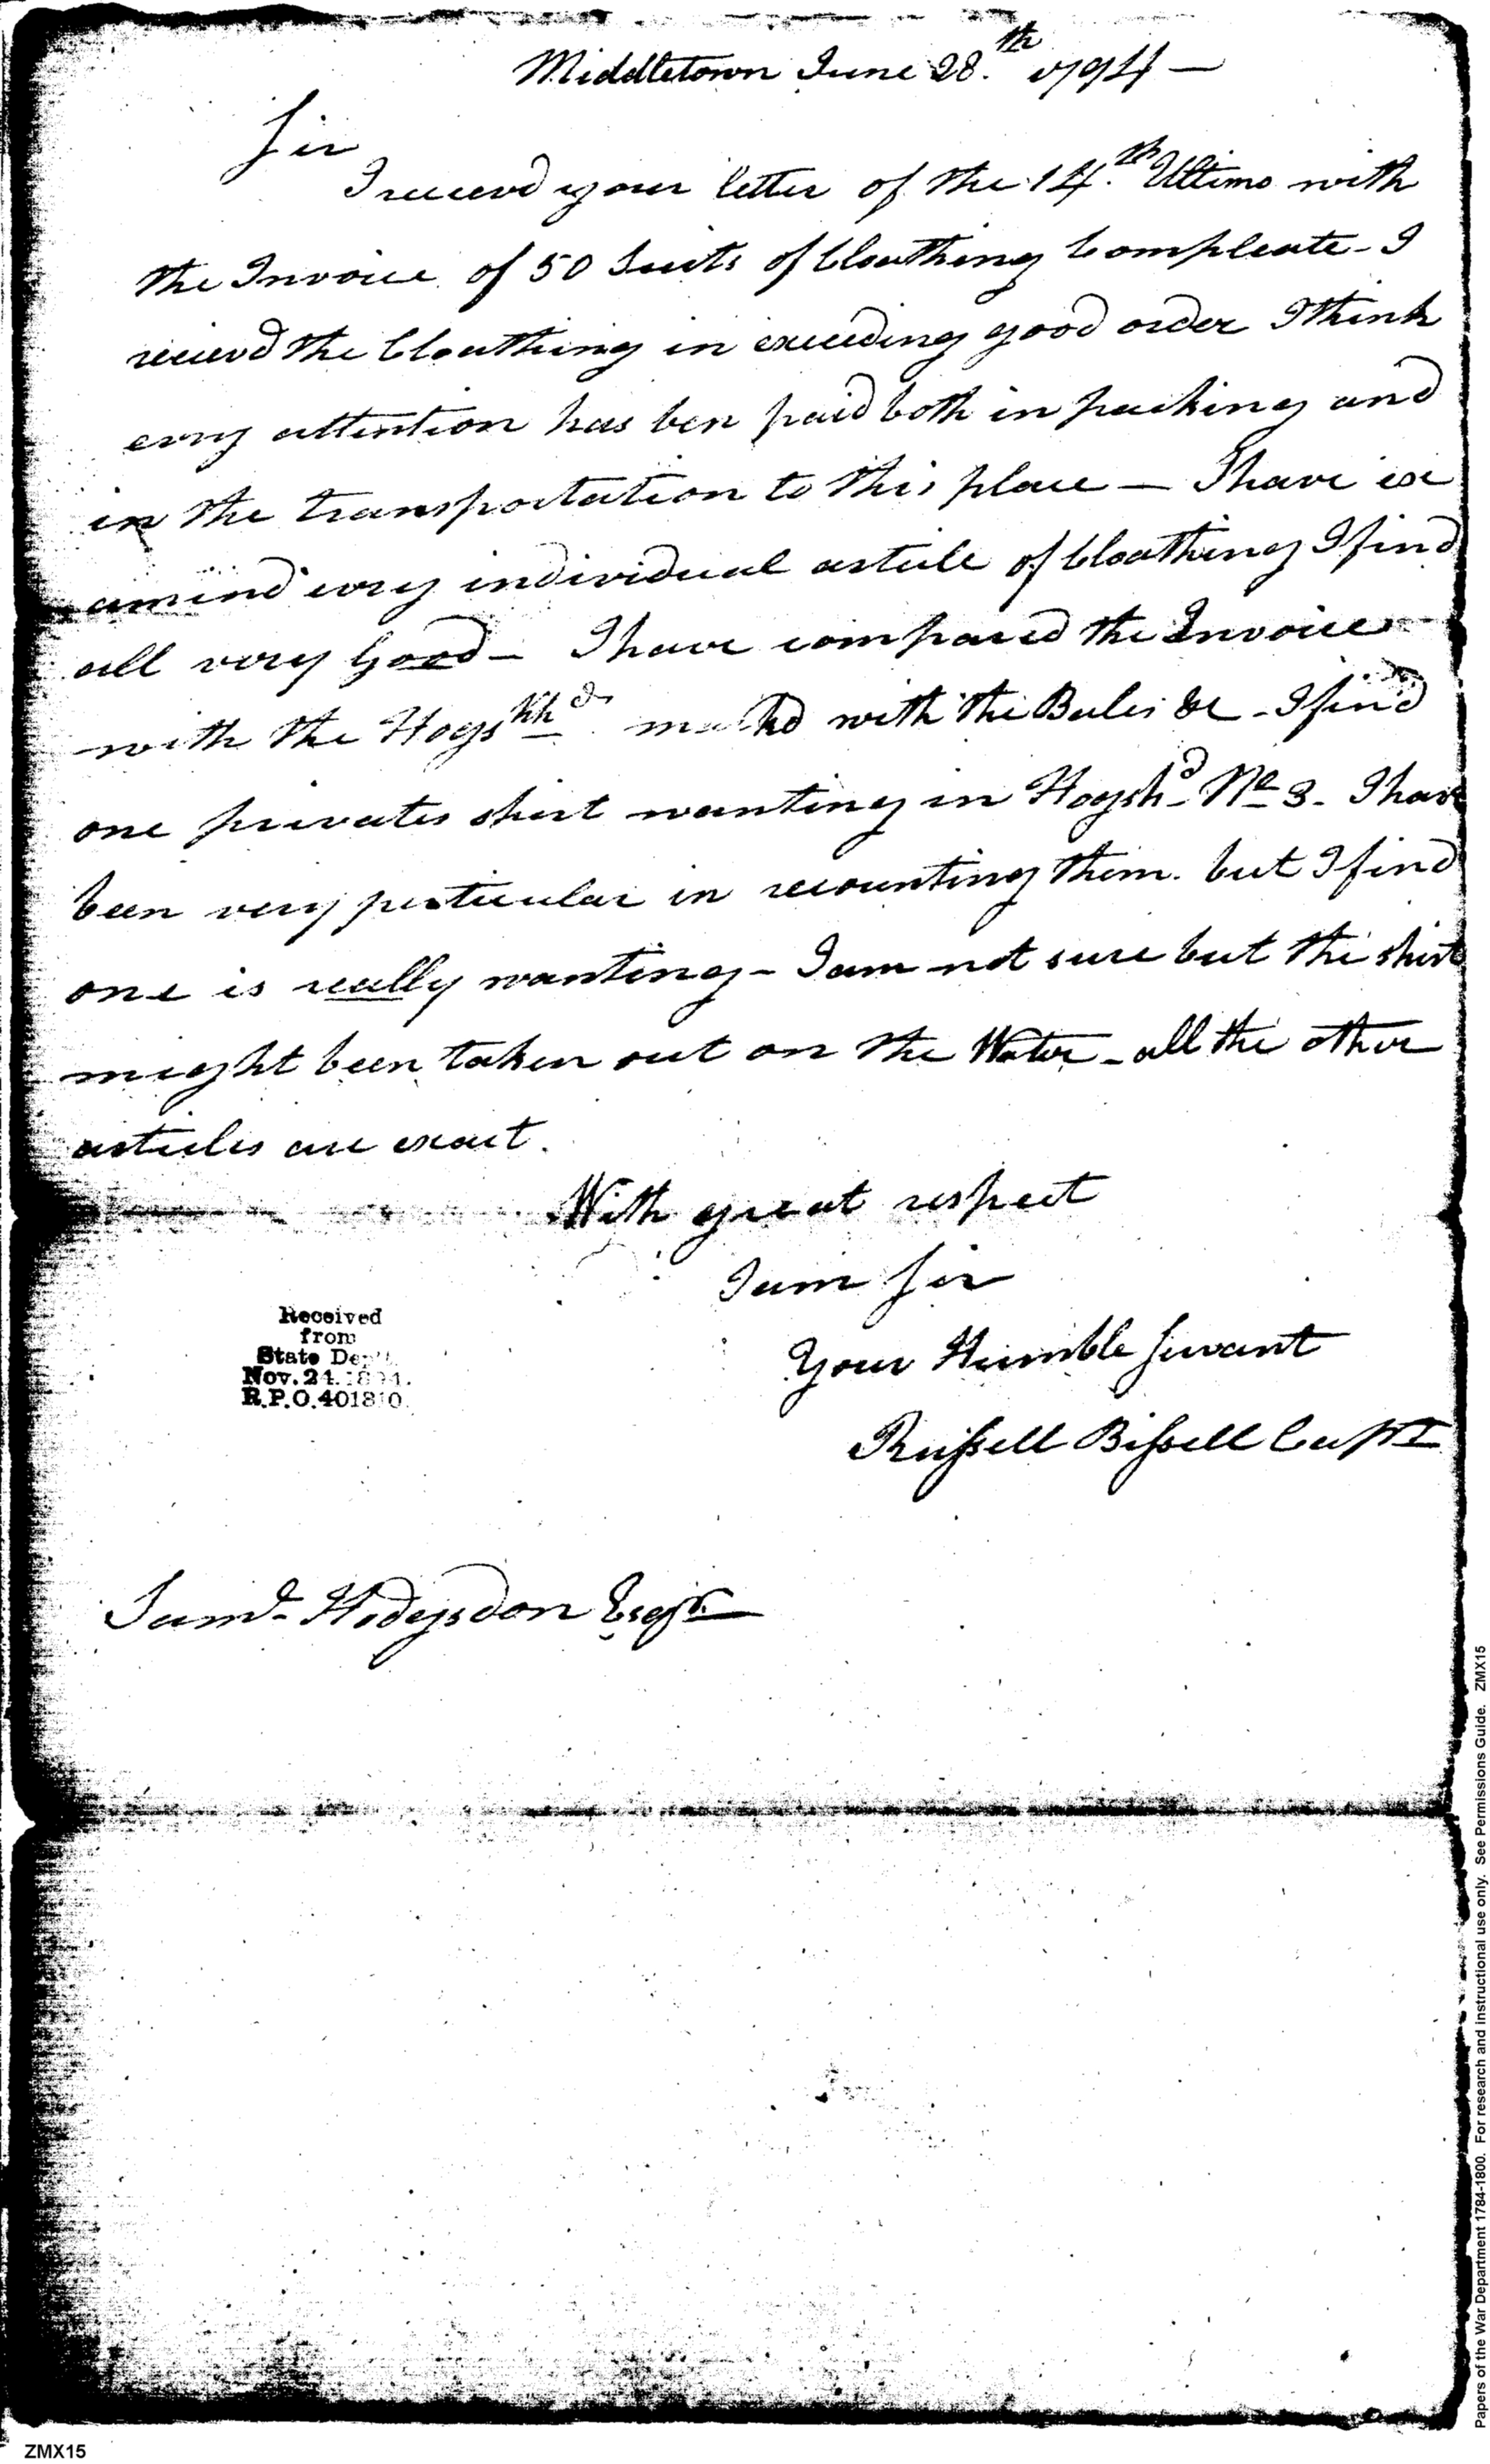 Middletown June 28.th 1794 —
Sir
I receievd your letter of the 14.th Ultimo with
the Invoice of 50 Suits of Cloathing Compleate - I
recievd the Cloathing in exceeding good order I think
evry attention has ben paid both in packing and
in the transportation to this place — I have ex
amind evry individual article of Cloathing I find
all very Good - I have compared the Invoice
with the Hogshhds with the Bales &c - I find
one privates shirt wanting in Hogshd No 3 - I have
been very perticular in recounting them. but I find
one is really wanting - I am not sure but the shirt
might been taken out on the Water - all the other
articles are exact.
With great respect
I am Sir
Your Humble Servant
Russell Bissell Capt
Received
from
State Dept.
Nov. 24. 1894.
R.P.O. 401810.
Saml Hodgsdon Esqr
Papers of the War Department 1784-1800. For research and instructional use only. See Permissions Guide. ZMX15
ZMX15